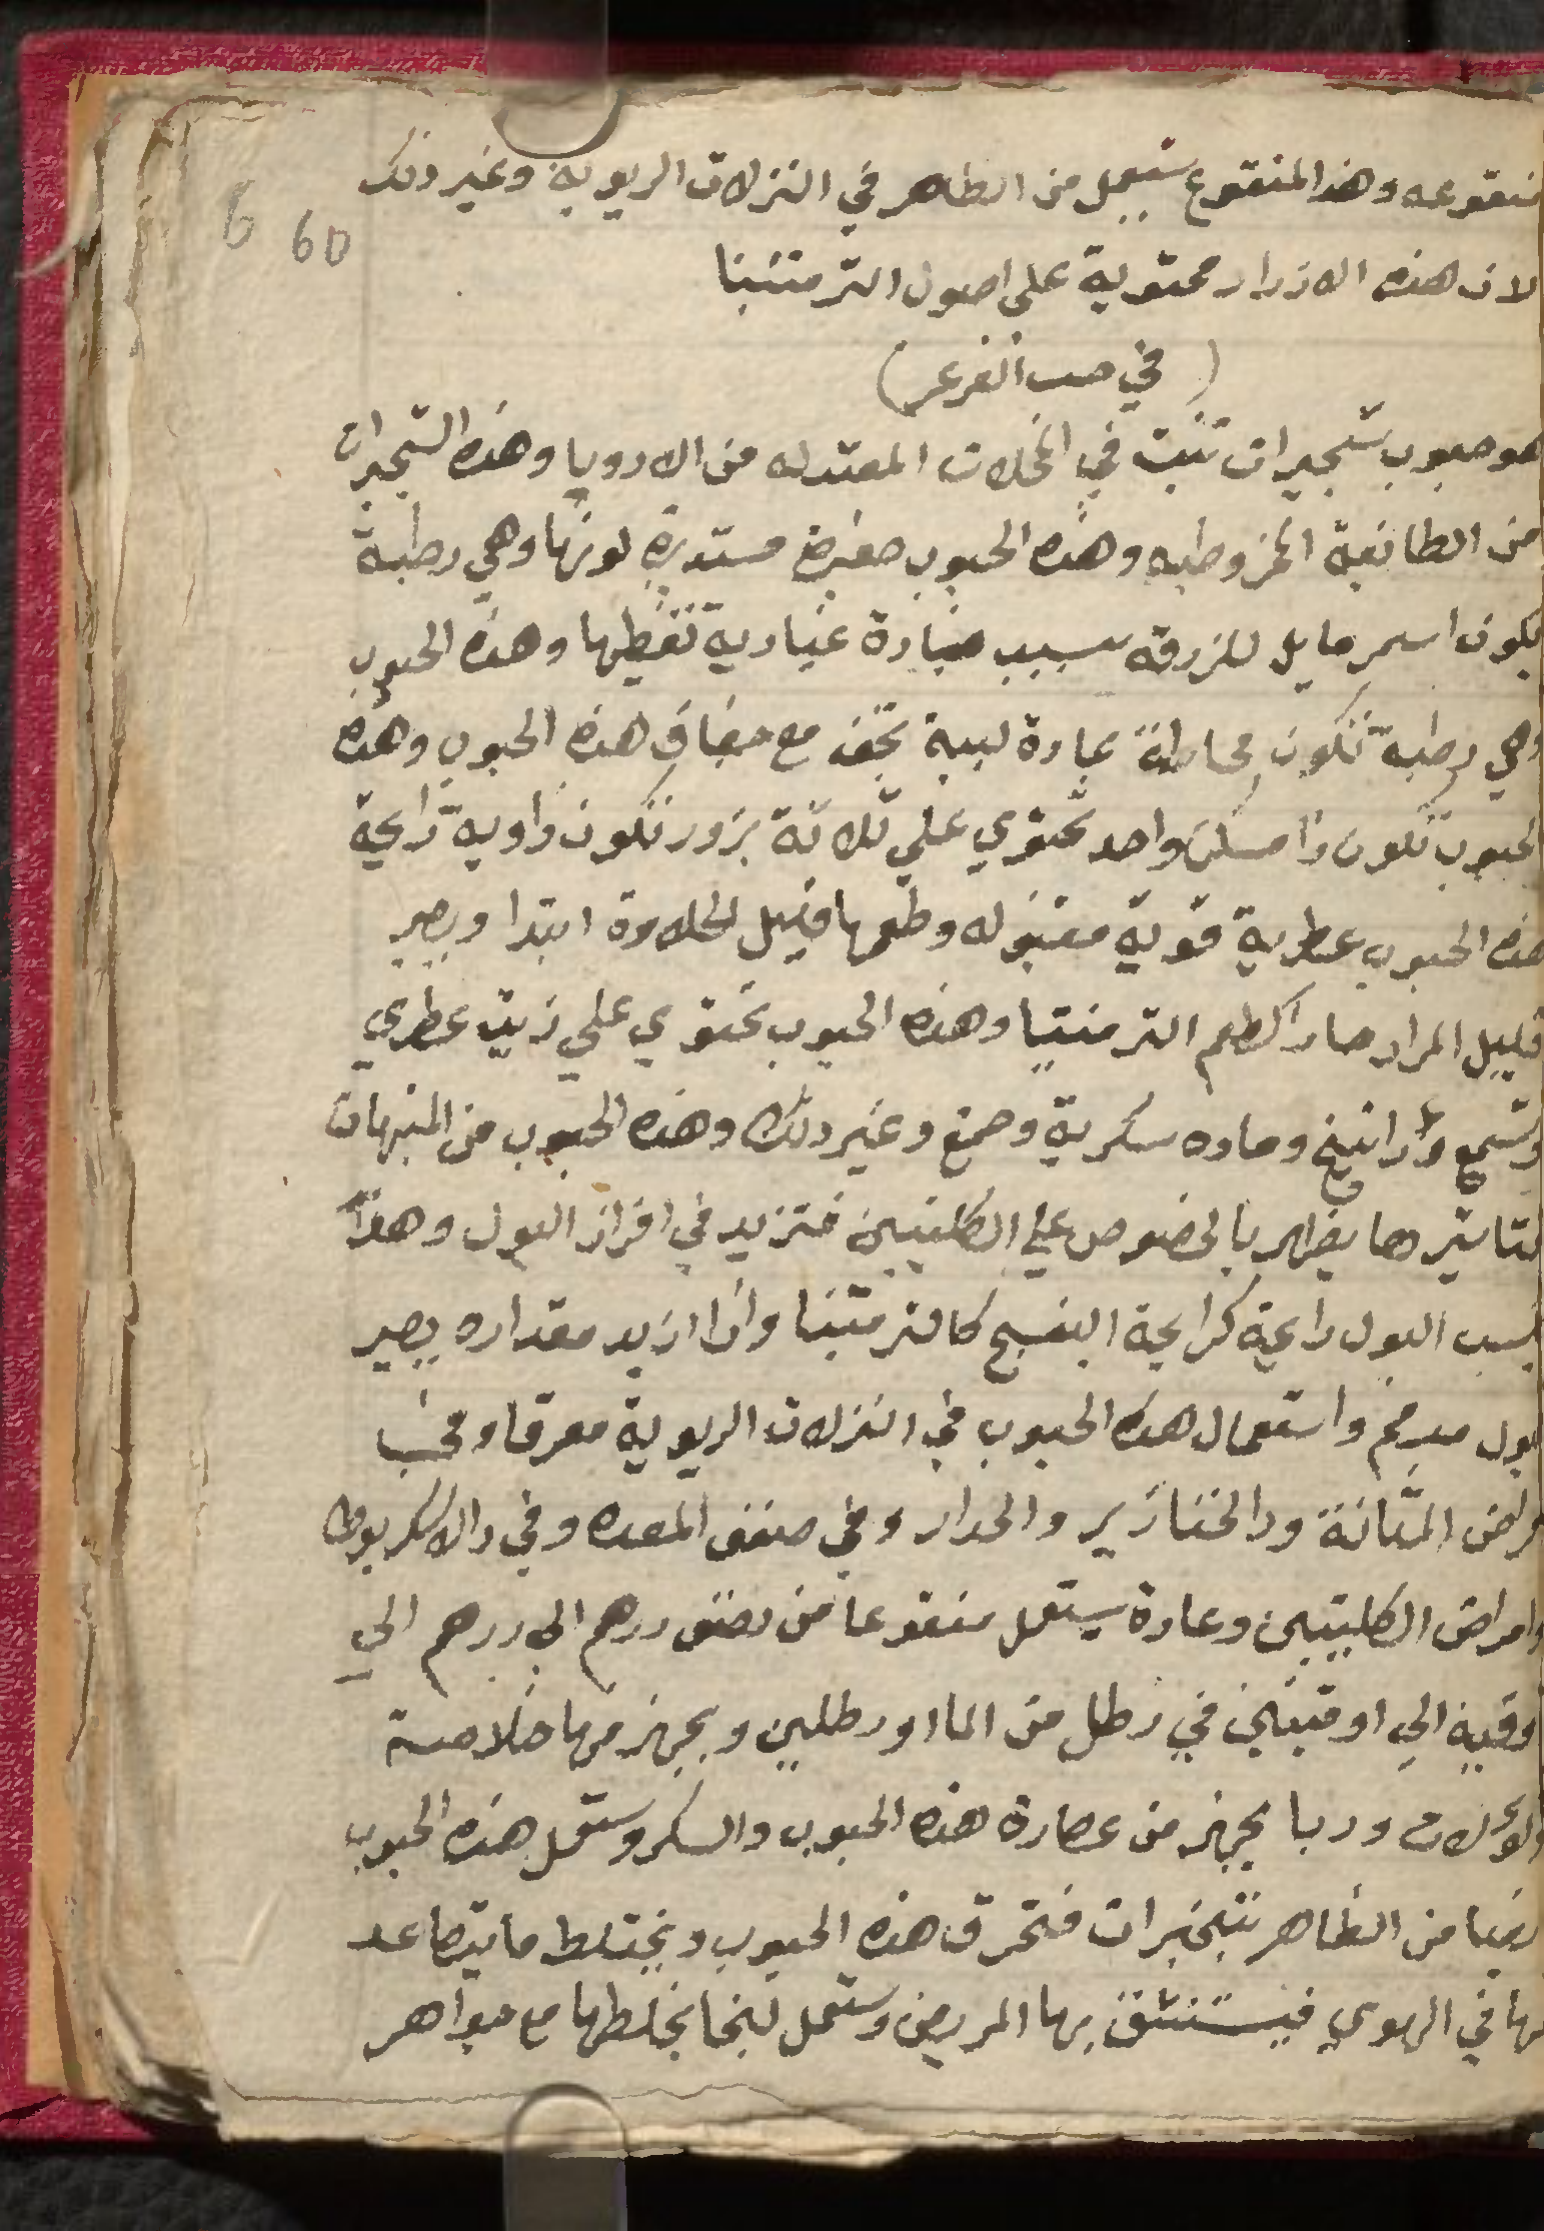 6 60
منقوعه وهذا المنقوع يستعمل من الظاهر في النزلات الريوية وغير ذلك
لان هذه الازرار محتوية علي اصول الترمنتينا
( في حب العرعر )
هو حبوب شجيرات تنبت في المحلات المعتدله من الاروپا وهذه الشجيرات
من الطائفة المخروطيه وهذه الحبوب صغيرة مستديرة لونها وهي رطبة
يكون اسمر مايل للزرقه بسبب مادة غبارية تغطيها وهذه الحبوب
وهي رطبة تكون محاطة بمادة لبية تجف مع جفاف هذه الحبوب وهذه
الحبوب تكون ذا مسكن واحد تحتوي علي ثلاثة بزور تكون زاويه رايحة
هذه الحبوب عطرية قوية مقبوله وطعمها قليل الحلاوة ابتدا ويصير
قليل المرار حارا كطعم الترمنتينا وهذه الحبوب تحتوي علي زيت عطري
وشمع وراتينج وماده سكرية وصمغ وغير ذلك وهذه الحبوب من المنبهات
لتاثيرها يظهر بالخصوص علي الكليتين فتزيد في افراز البول وهذا
يكسب البول رايحة كرايحة البنفسج كالترمنتينا واذا ازيد مقداره يصير
البول مدمم واستعمال هذه الحبوب في النزلات الريوية معرقا و
امراض المثانة ودا الخنازير والحدار وفي ضعف المعده وفي دا الاسكربوط
وامراض الكليتين وعادة يستعمل منقوعا من نصف درهم الي درهم الي
اوقية الي اوقيتين في رطل من الما او رطلين ويجهز منها خلاصة
وربا يجهز من عصارة هذه الحبوب والسكر وستعمل هذه الحبوب
ايضا من الظاهر بتبخيرات فتحرق هذه الحبوب ويختلط ما يتصاعد
منها في الهوي فيستنشق بها المريض وستعمل لبخا بخلطها مع جواهر